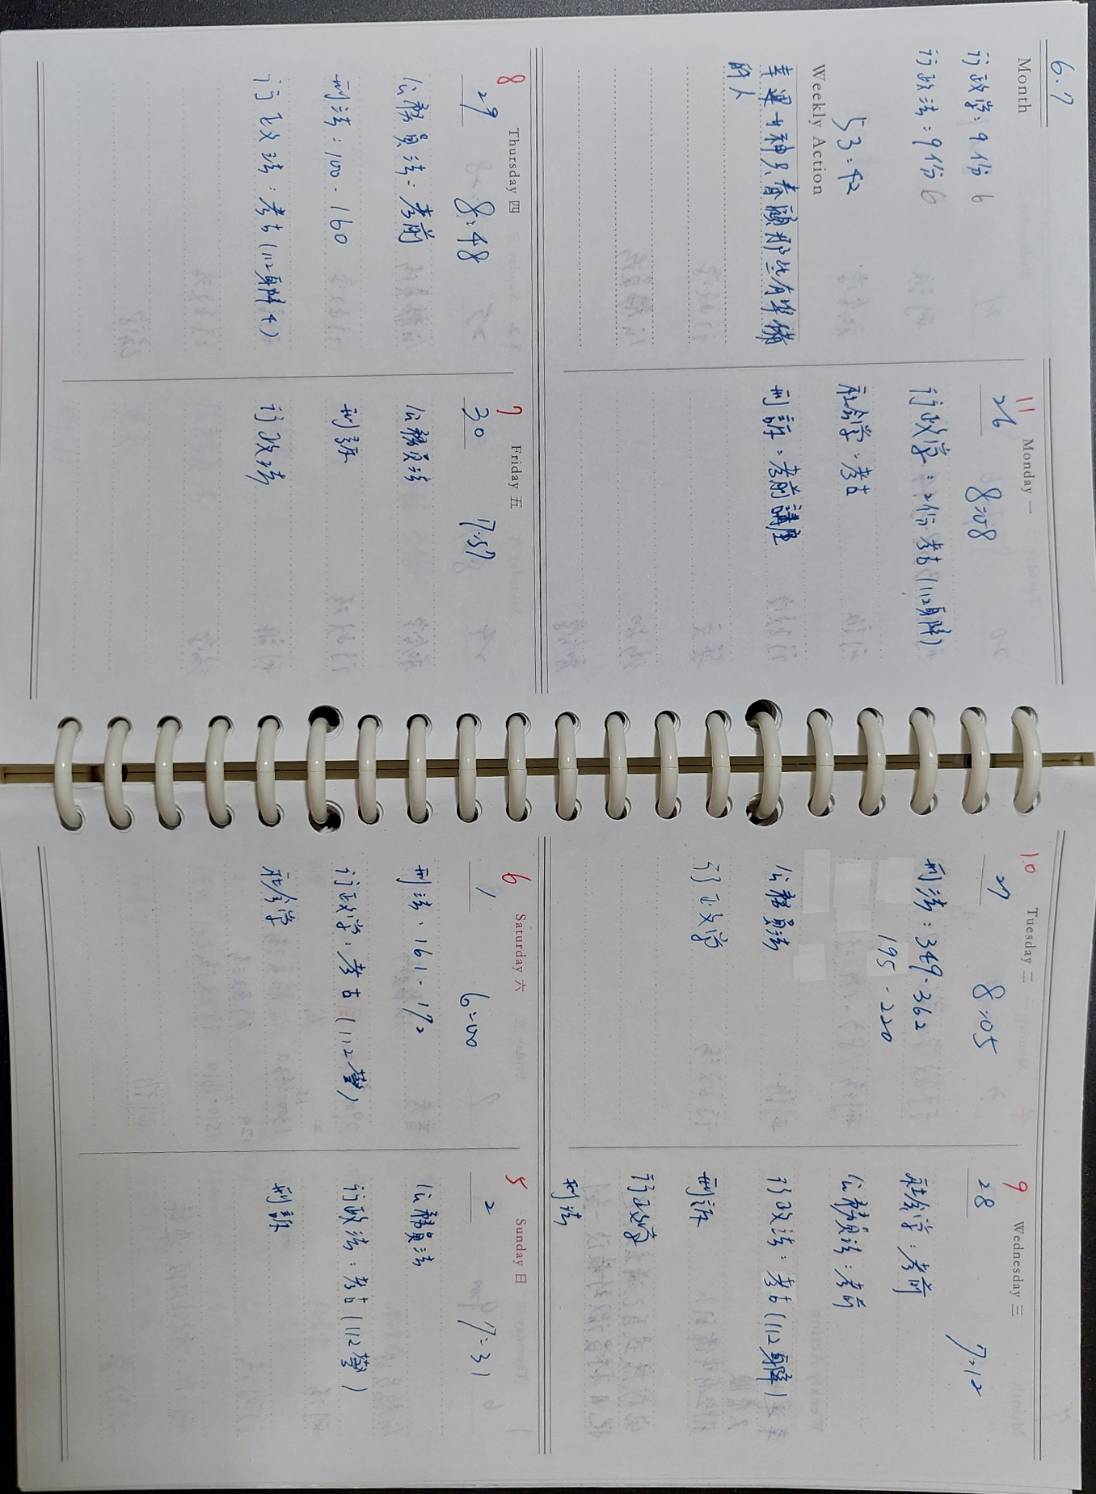 6.7
Month
行政学：9份 6
行政法：9份 6
53:42
Weekly Action
幸運女神只眷顧那些有準備
的人
11
Monday 一
26
8:08
行政学：2份考古(112身障)
社会学：考古
刑訴：考前講座
10
Tuesday 二
27
8:05
刑法：349-362
195-220
公務員法
行政学
9
Wednesday 三
28
7:12
社会学：考前
公務員法：考前
行政法：考古(112身障)
刑訴
行政学
刑法
8
Thursday 四
29
8:48
公務員法：考前
刑法：100-160
行政法：考古(112身障4)
7
Friday 五
30
7:57
公務員法
刑訴
行政法
6
Saturday 六
1
6:00
刑法：161-172
行政学：考古(112警)
社会学
5
Sunday 日
2
7:31
公務員法
行政法：考古(112警)
刑訴